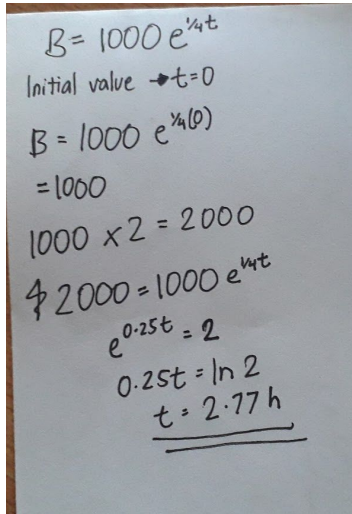 B = 1000 e^¼t
Initial value → t=0
B = 1000 e^¼(0)
= 1000
1000 × 2 = 2000
2000 = 1000 e^¼t
e^0.25t = 2
0.25t = ln 2
t = 2.77 h